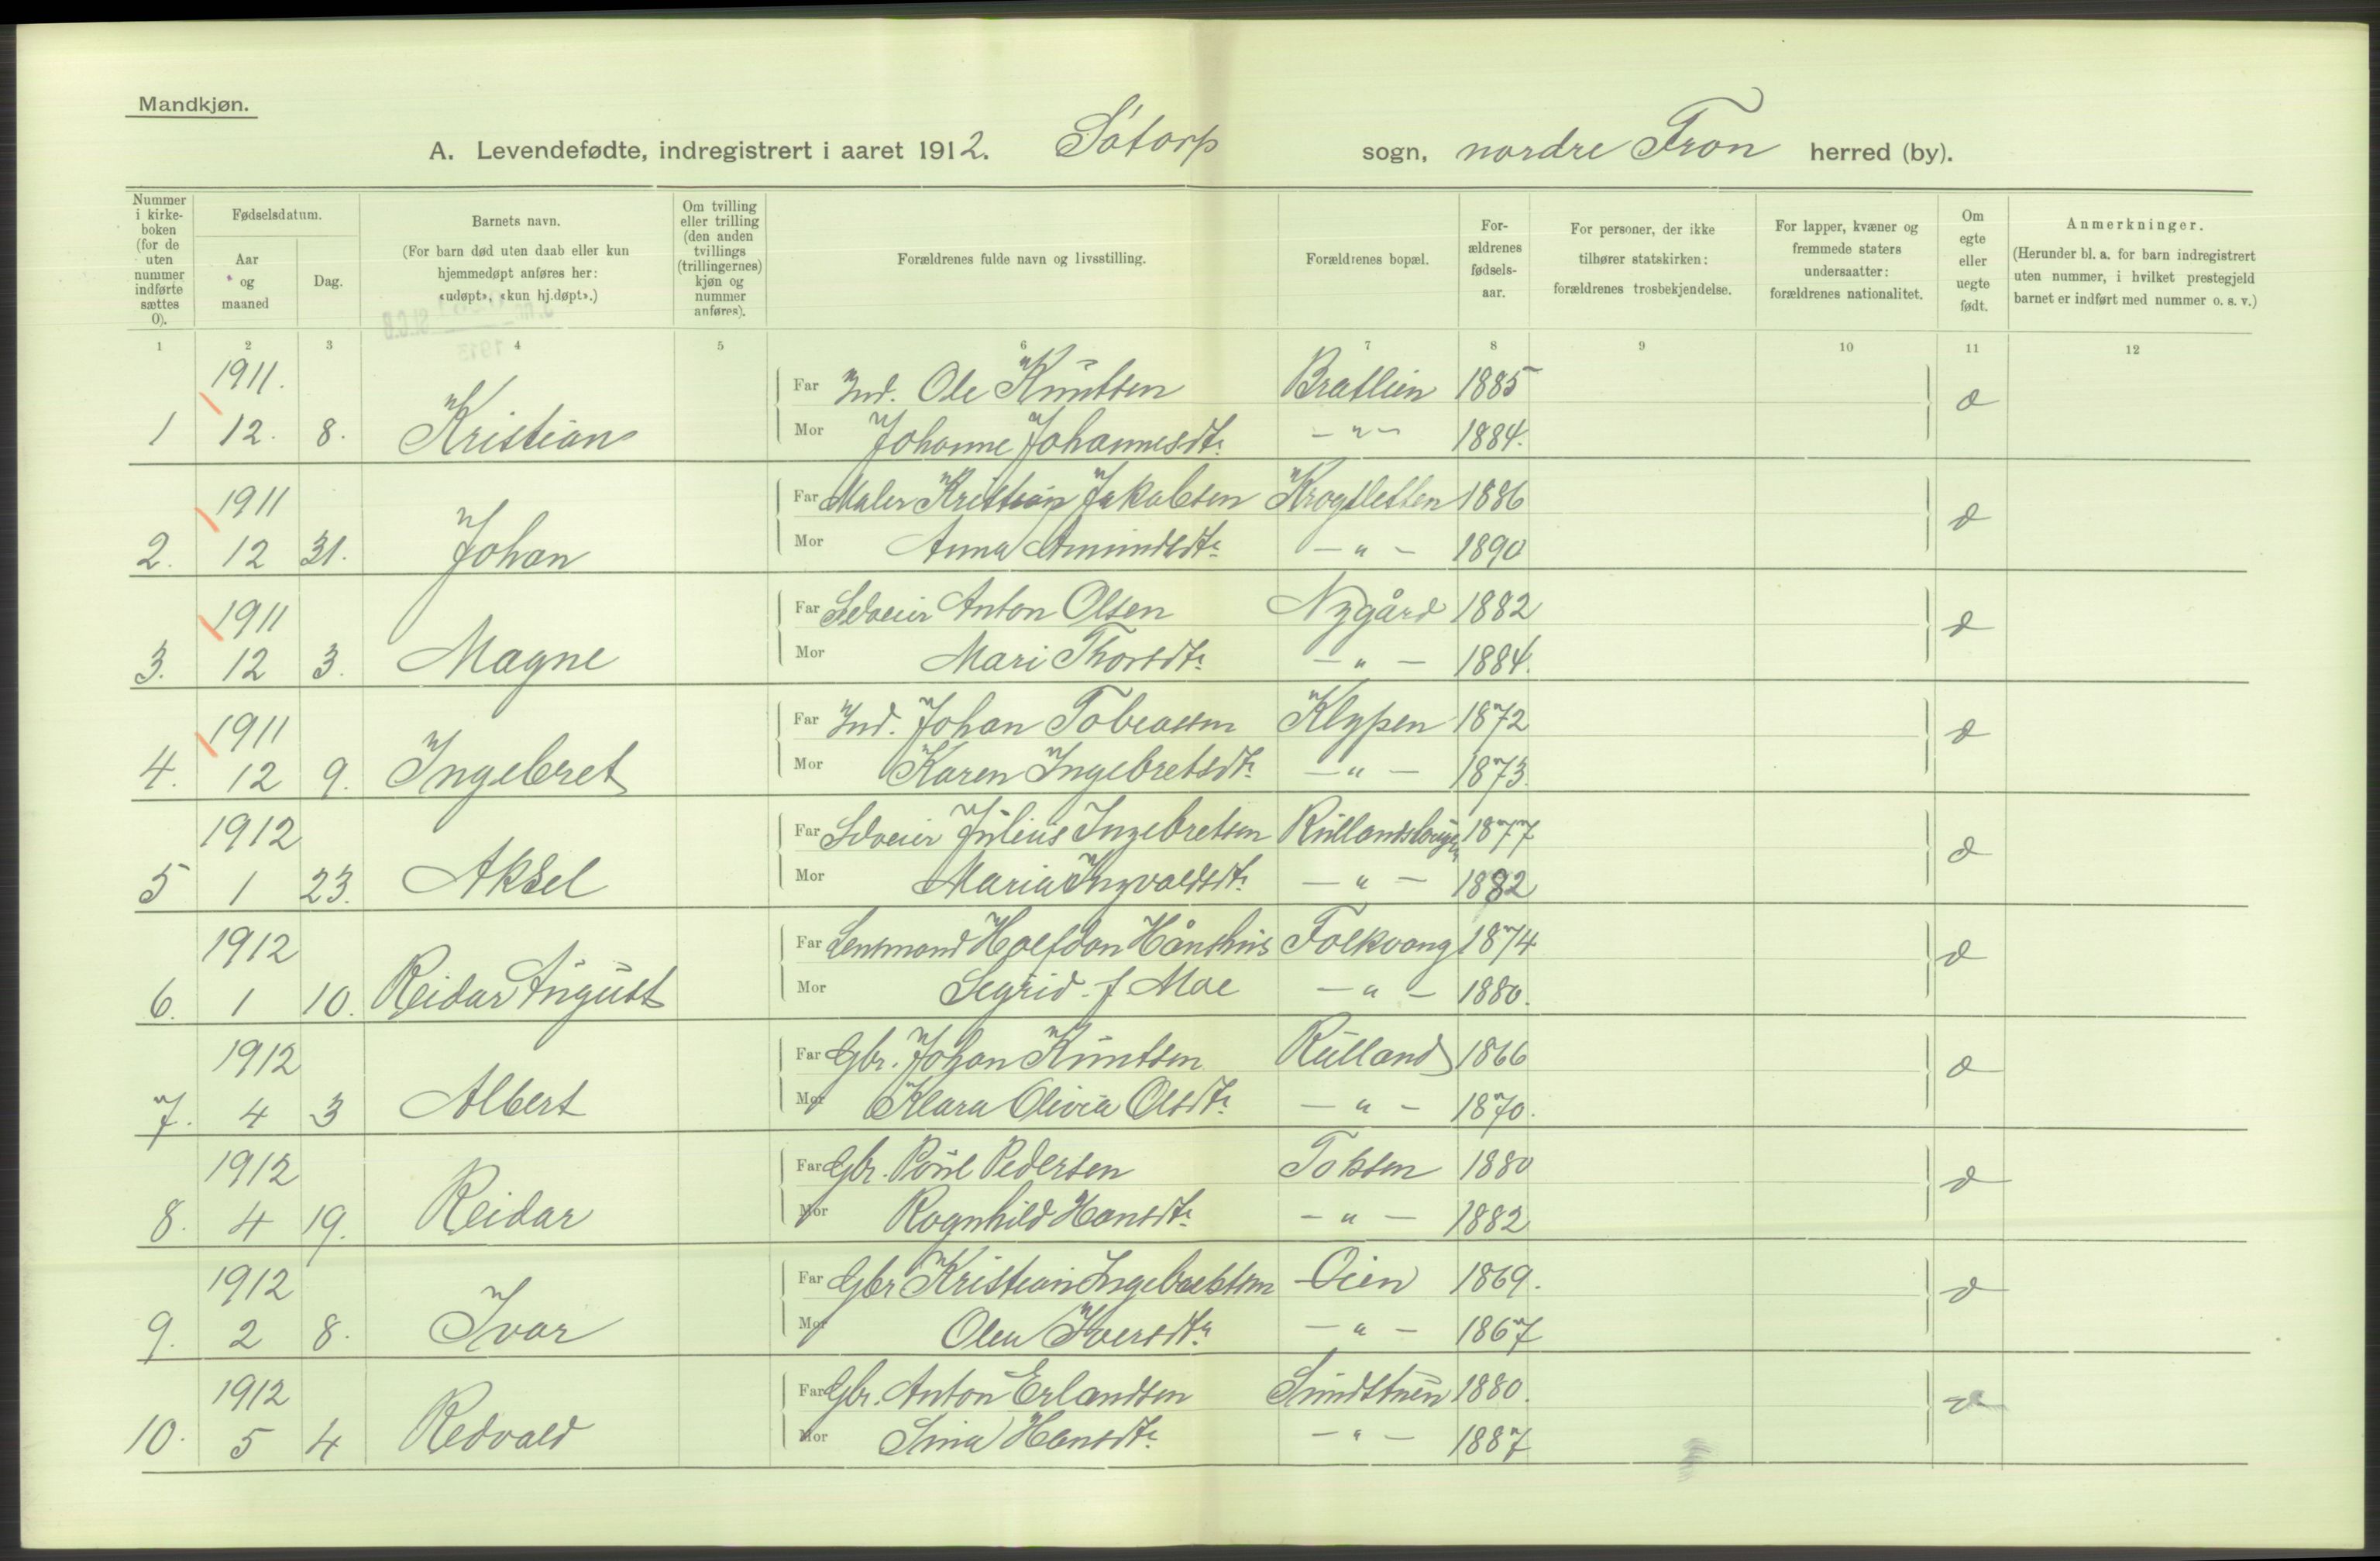 Mandkjøn.
A. Levendefødte, indregistrert i aaret 1912. Sótorp sogn, nordre Fron herred (by).
Nummer i kirke-boken (for de uten nummer indførte sættes 0).
Fødselsdatum.
Aar og maaned
Dag.
Barnets navn.
(For barn død uten daab eller kun hjemmedøpt anføres her: «udøpt», «kun hj.døpt».)
Om tvilling eller trilling (den anden tvillings (trillingernes) kjøn og nummer anføres).
Forældrenes fulde navn og livsstilling.
Forældrenes bopæl.
For-ældrenes fødsels-aar.
For personer, der ikke tilhører statskirken: forældrenes trosbekjendelse.
For lapper, kvæner og fremmede staters undersaatter: forældrenes nationalitet.
Om egte eller uegte født.
Anmerkninger.
(Herunder bl. a. for barn indregistrert uten nummer, i hvilket prestegjeld barnet er indført med nummer o. s. v.)
1 2 3 4 5 6 7 8 9 10 11 12
1911. Far Ind. Ole Knutsen Bratlien 1885
1 12. 8. Kristian Mor Johanne Johannesdtr. — " — 1884.
1911 Far Maler Kristian Jakobsen Krogsletten 1886
2. 12 31. Johan Mor Anna Amundsdtr. — " — 1890
1911 Far Selveier Anton Olsen Nygård 1882
3. 12 3. Magne Mor Mari Thorsdtr. — " — 1884.
1911 Far Ind. Johan Tobiassen Klypen 1872
4. 12 9. Ingebret Mor Karen Ingebretsdtr. — " — 1873.
1912 Far Selveier Julius Ingebretsen 1877
5 1 23. Aksel Mor Maria Ingvaldsdtr. — " — 1882
1912 Far Lensmand Halfdan Hånshus Folkvang 1874
6. 1 10. Reidar August Mor Sigrid f. Moe — " — 1880.
1912 Far Gbr. Johan Knutsen Rulland 1866
7. 4 3 Albert Mor Klara Olivia Olsdtr. — " — 1870.
1912 Far Gbr. Poul Pedersen Toksen 1880
8. 4 19. Reidar Mor Ragnhild Hansdtr. — " — 1882
1912 Far Gbr Kristian Ingebretsen Oien 1869.
9. 2 8. Ivar Mor Olea Iversdtr. — " — 1867
1912 Far Gbr. Anton Erlandsen Sundstuen 1880.
10. 5 4 Redvald Mor Sina Hansdtr. — " — 1887